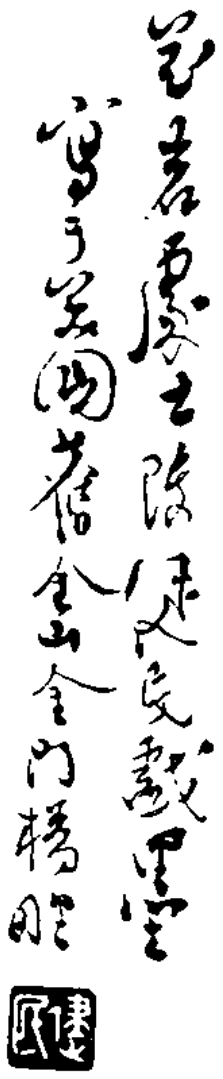 處士陳健民戲墨
寫于美國舊金山金門橋畔
健民